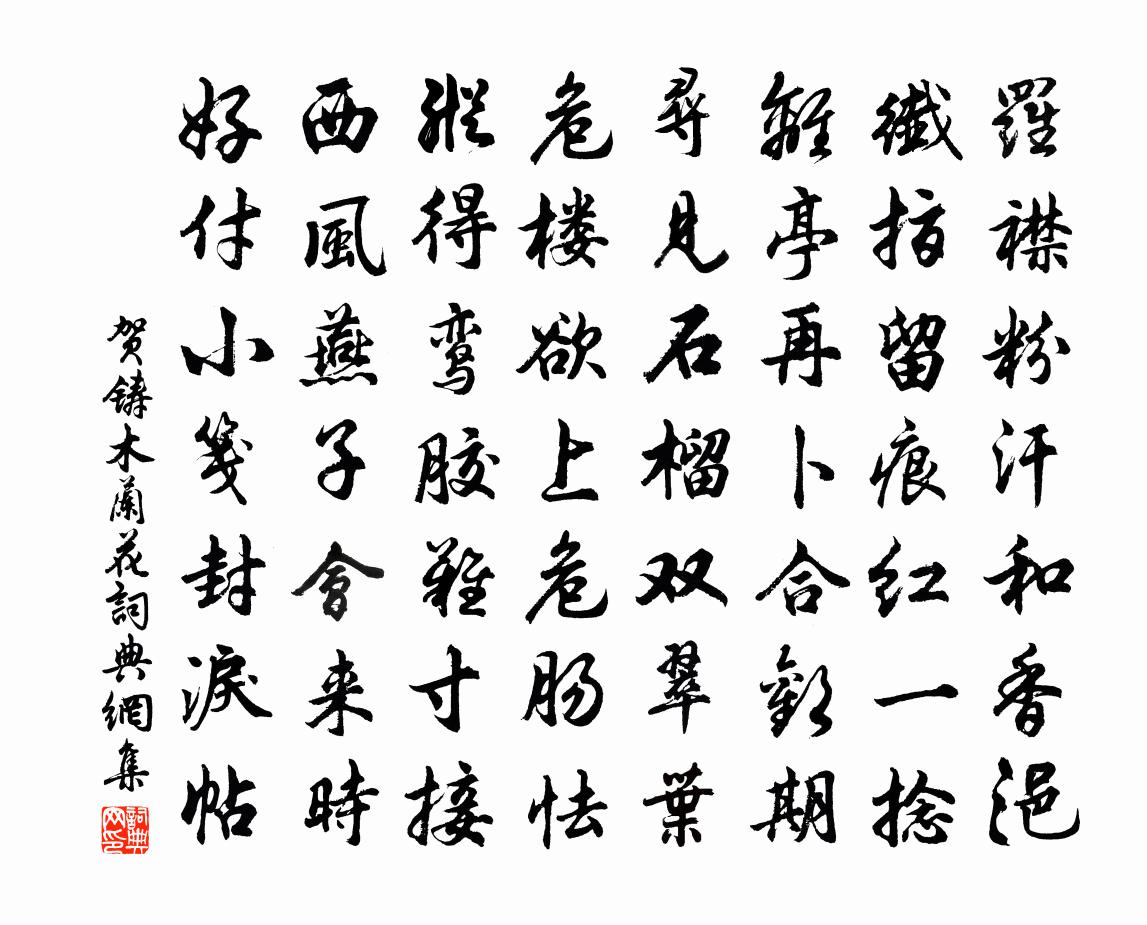 羅襟粉汗和香浥
纖指留痕红一捻
離亭再卜合歡期
尋見石榴双翠葉
危楼欲上危肠怯
縱得鸾胶難寸接
西風燕子會来時
好付小箋封淚帖
贺鑄木蘭花詞典網集
詞典网印